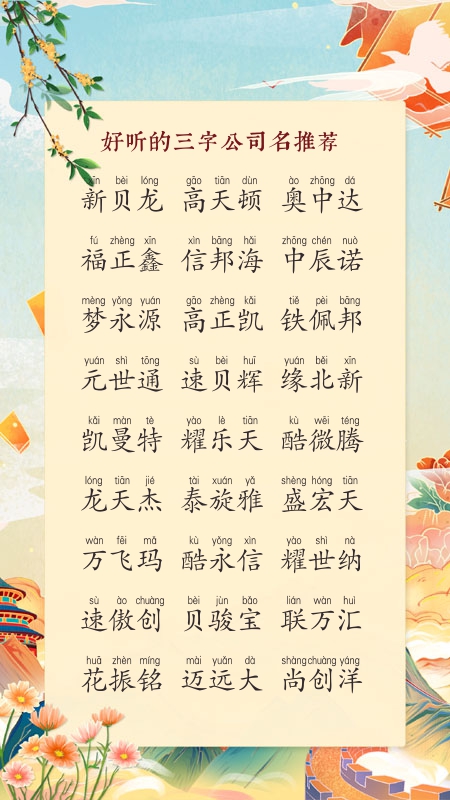 好听的三字公司名推荐
xīn bèi lóng gāo tiān dùn ào zhōng dá
新贝龙 高天顿 奥中达
fú zhèng xīn xìn bāng hǎi zhōng chén nuò
福正鑫 信邦海 中辰诺
mèng yǒng yuán gāo zhèng kǎi tiě pèi bāng
梦永源 高正凯 铁佩邦
yuán shì tōng sù bèi huī yuán běi xīn
元世通 速贝辉 缘北新
kǎi màn tè yào lè tiān kù wēi téng
凯曼特 耀乐天 酷微腾
lóng tiān jié tài xuán yǎ shèng hóng tiān
龙天杰 泰旋雅 盛宏天
wàn fēi mǎ kù yǒng xìn yào shì nà
万飞玛 酷永信 耀世纳
sù ào chuàng bèi jùn bǎo lián wàn huì
速傲创 贝骏宝 联万汇
huā zhèn míng mài yuǎn dà shàng chuàng yáng
花振铭 迈远大 尚创洋